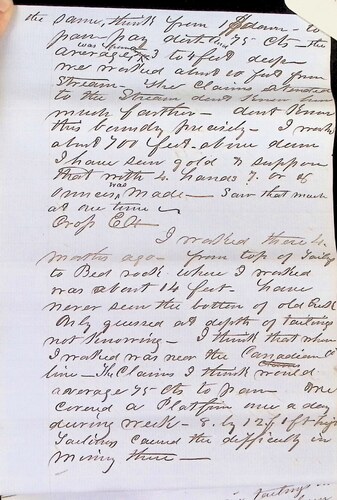 the same, think from 1 ft down - to
pan pay dirt 75 cts - the
average was 3 to 4 feet deep
we worked about 10 feet from
Stream - The Claims extended
to the Stream dont know how
much farther - dont know
this boundry precisely - I work
abut 700 feet above dam
I have seen gold I suppose
that with 4 hands 7 or 8
ounces was made - Saw that much
at one time -
Cross Ex
I worked there 4
months ago - from top of Tailings
to Bed rock where I worked
was about 14 feet - have
never seen the bottom of old Creek
Only guessed at depth of tailings
not knowing - I think that when
I worked was near the Canadian Co
line - The Claims I think would
average 75 cts to pan We
covered a Platform once a day
during week - 8 by 12 & 1 ft high
Tailings caused the difficulty in
mining there -
tailings in